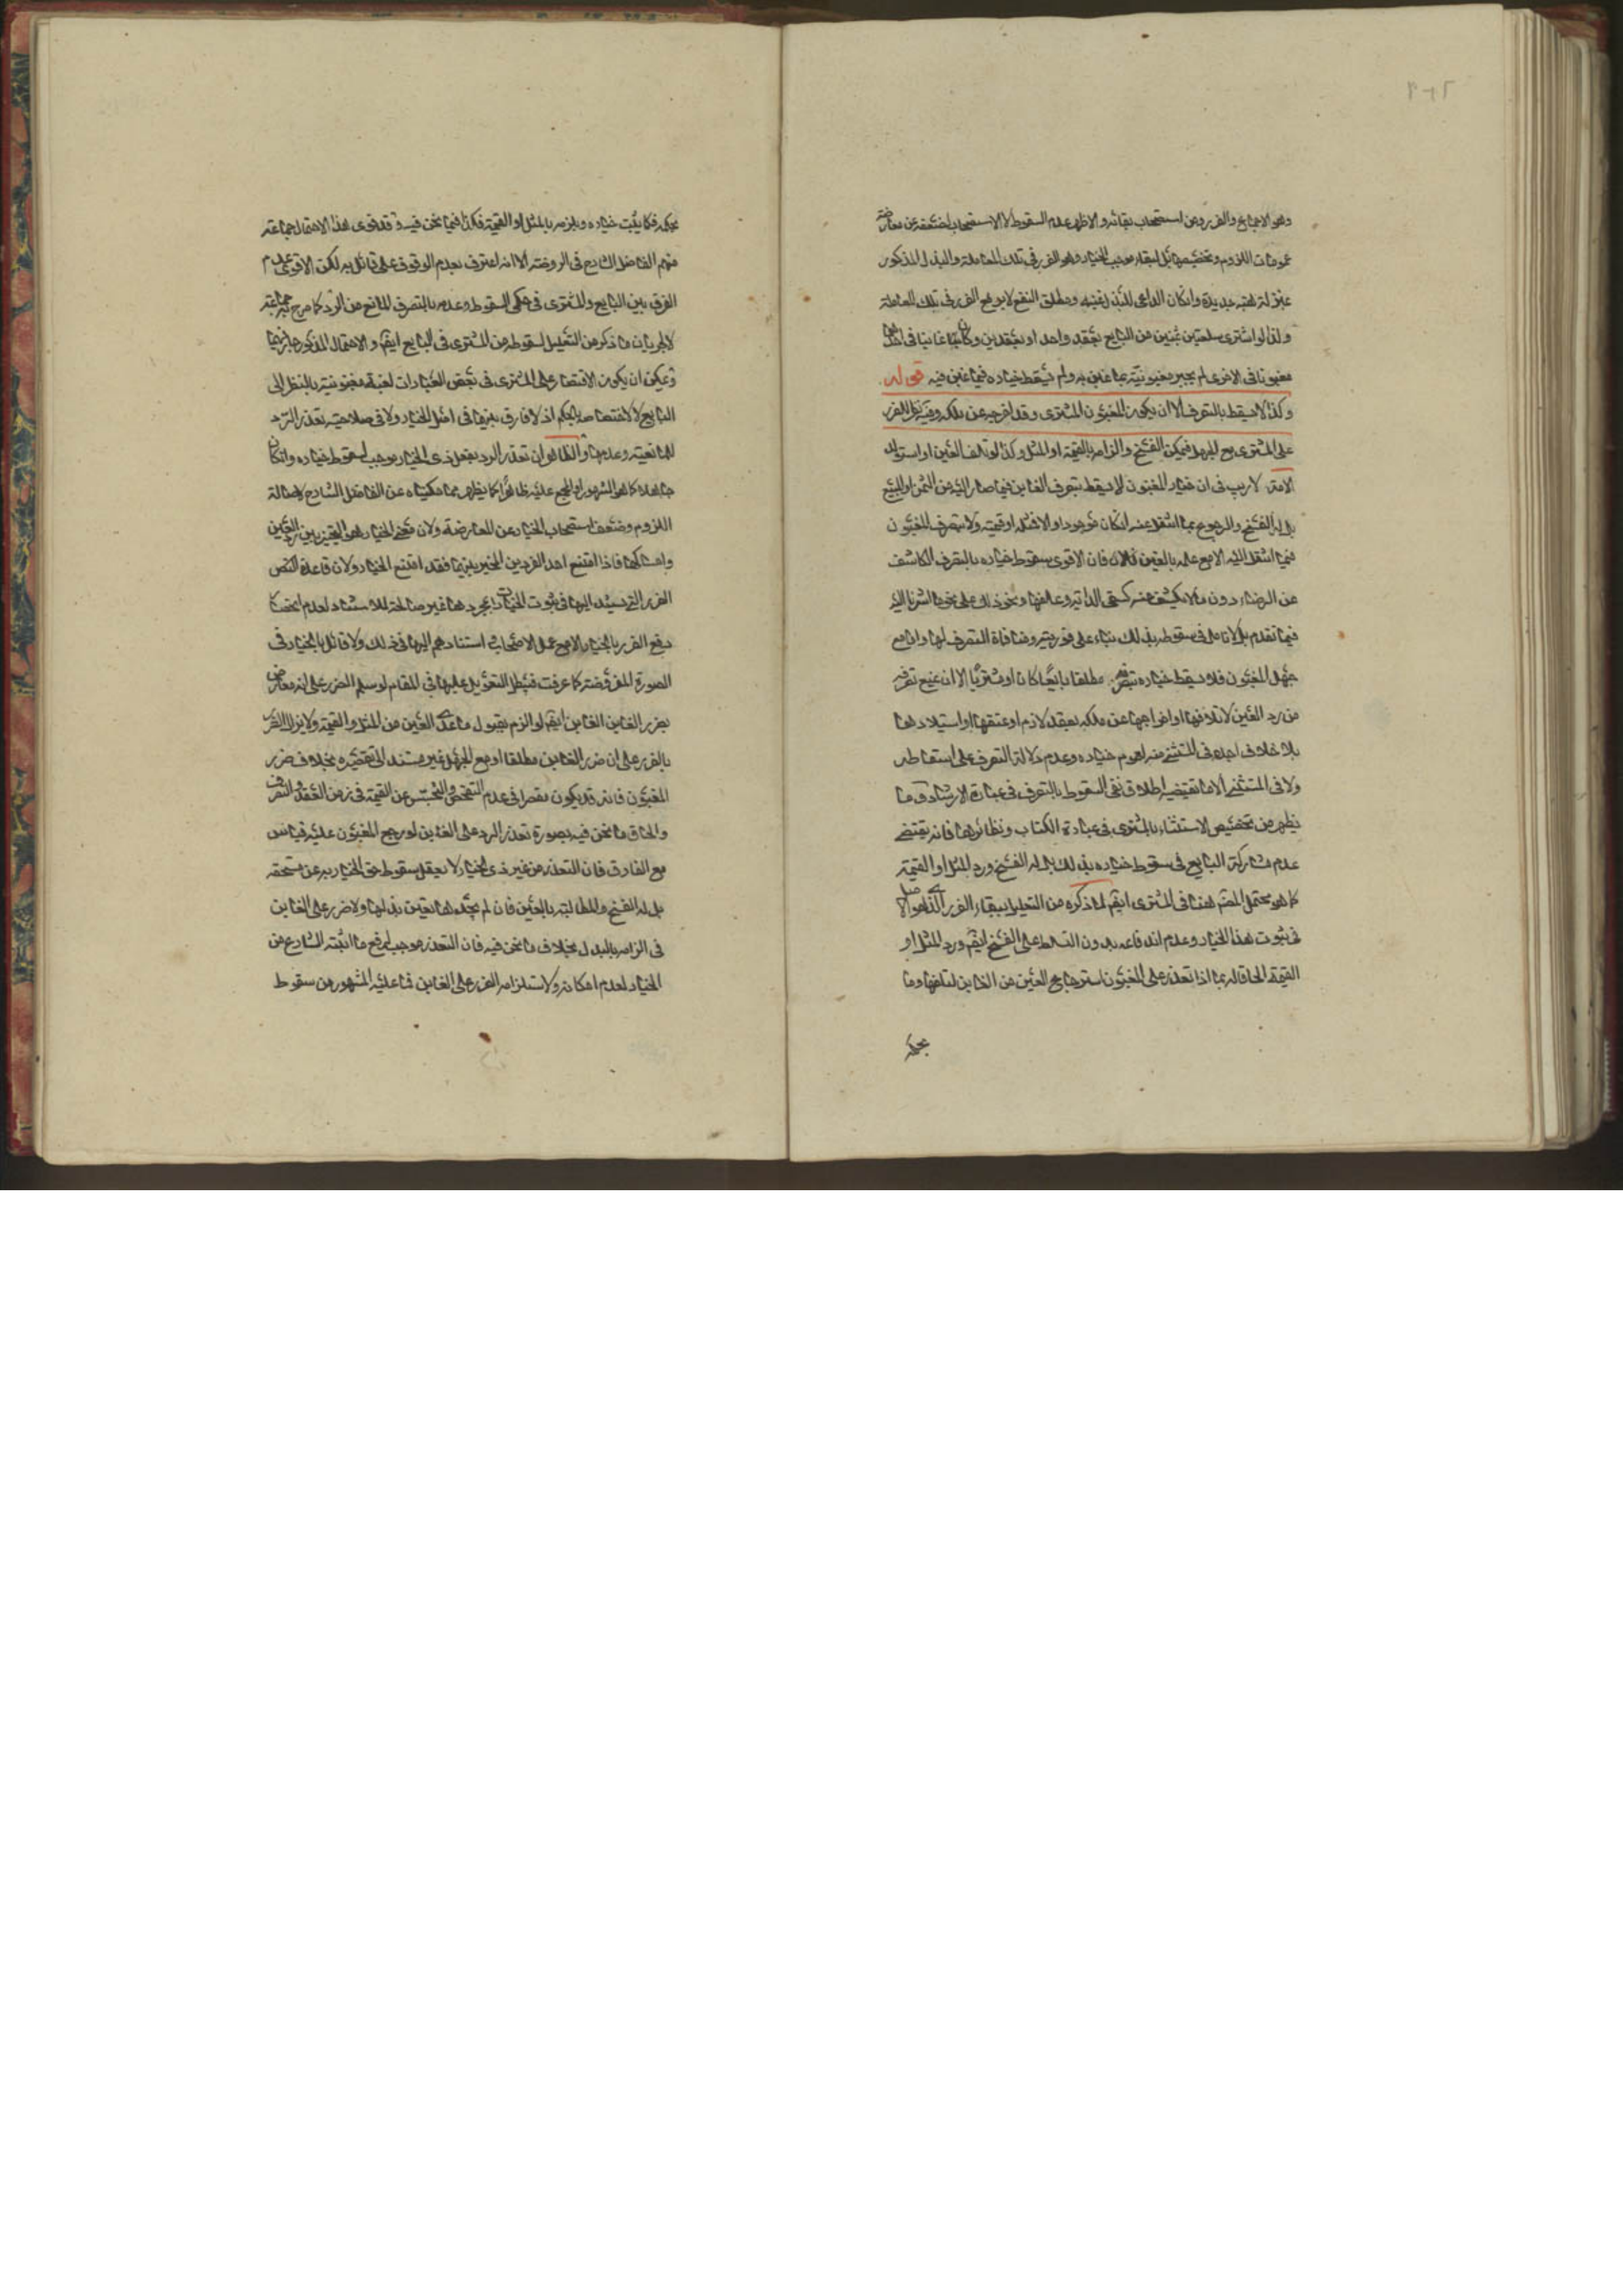 وهو الاجماع والضرر ومن استصحاب بقائه والاظهر عدم السقوط لا للاستصحاب لضعفه عن معارضة
عمومات اللزوم وتخصيصها بل لبقاء موجب الخيار وهو الضرر في تلك المعاملة والبذل المذكور
بمنزلة هبة جديدة وان كان الداعي للبذل غبنه ومطلق النفع لا يدفع الضرر في تلك المعاملة
ولذا لو اشترى سلعتين بثمنين من البايع بعقد واحد او بعقدين وكان غابنا في احدهما
مغبونا في الاخرى لم يجبر مغبونيته بما غبن به ولم يسقط خياره فيما غبن فيه قوله
وكذا لا يسقط بالتصرف الا ان يكون المغبون المشتري وقد اخرجه عن ملكه وفيه نظر للضرر
على المشتري مع الجهل فيمكن الفسخ والزامه بالقيمة او المثل وكذا لو تلف العين او استولد
الامة لا ريب في ان خيار المغبون لا يسقط بتصرف الغابن فيما صار اليه من الثمن او المبيع
بل له الفسخ والرجوع بما انتقل عنه ان كان موجودا والا فمثله او قيمته ولا بتصرف المغبون
فيما انتقل اليه الا مع علمه بالغبن فان الاقوى سقوط خياره بالتصرف الكاشف
عن الرضاء دون ما لا يكشف عنه كسقي الدابة وعلفها ونحو ذلك على نحو ما اشرنا اليه
فيما تقدم بل لا تامل في سقوطه بذلك بناء على فوريته ومنافاة التصرف لها واما مع
جهل المغبون فلا يسقط خياره بتصرفه مطلقا بايعا كان او مشتريا الا ان يمنع تصرفه
من رد العين لاتلافها او اخراجها عن ملكه بعقد لازم او عتقها او استيلادها
بلا خلاف اجده في المستثنى منه لعموم خياره وعدم دلالة التصرف على اسقاطه
ولا في المستثنى الا ما يقتضيه اطلاق نفي السقوط بالتصرف في عبارة الارشاد وما
يظهر من تخصيص الاستثناء بالمشتري في عبارة الكتاب ونظائرها فانه يقتضي
عدم مشاركة البايع في سقوط خياره بذلك بل له الفسخ ورد المثل او القيمة
كما هو محتمل المصنف هنا في المشتري ايضا لما ذكره من التعليل ببقاء الضرر الذي هو الاصل
في ثبوت هذا الخيار وعدم اندفاعه بدون التسلط على الفسخ ايضا ورد المثل او
القيمة الحاقا له بما اذا تعذر على المغبون استرجاع العين من الغابن لتلفها وما
بحكمه
بحكمه فكما يثبت خياره ويلزمه بالمثل او القيمة فكذا فيما نحن فيه وقد قوى هذا الاحتمال جماعة
منهم الفاضل الشارح في الروضة الا انه اعترف بعدم الوقوف على قائل به لكن الاقوى عدم
الفرق بين البايع والمشتري في حكمي السقوط وعدمه بالتصرف المانع من الرد كما صرح به جماعة
لجريان ما ذكر من التعليل لسقوطه من المشتري في البايع ايضا والاحتمال المذكور جار فيهما
ويمكن ان يكون الاقتصار على المشتري في بعض العبارات لغلبة مغبونيته بالنظر الى
البايع لا لاختصاصه بالحكم اذ لا فارق بينهما في اصل الخيار ولا في صلاحية تعذر الرد
للمانعية وعدمها والظاهر ان تعذر الرد بفعل ذي الخيار يوجب لسقوط خياره وان كان
جاهلا كما هو المشهور او المجمع عليه ظاهرا كما يظهر مما حكيناه عن الفاضل الشارح لاصالة
اللزوم وضعف استصحاب الخيار عن المعارضة ولان معنى الخيار هو التخيير بين رد العين
وامساكها فاذا امتنع احد الفردين المخير بينهما فقد امتنع الخيار ولان قاعدة النص
الضرر التي يستند اليها في ثبوت الخيارات بمجردها غير صالحة للاستناد لعدم انحصار
دفع الضرر بالخيار الا مع عمل الاصحاب استنادهم اليها في ذلك ولا قائل بالخيار في
الصورة المفروضة كما عرفت فيبطل التعويل عليها في المقام لو سلم الضرر على انه معارض
بضرر الغابن ايضا لو الزم بقبول ما عدا العين من المثل والقيمة ولا يزال الضرر
بالضرر على ان ضرر الغابن مطلقا او مع الجهل غير مستند الى تقصيره بخلاف ضرر
المغبون فانه قد يكون مقصرا في عدم التفحص والتجسس عن القيمة في زمن العقد والتصرف
والحاق ما نحن فيه بصورة تعذر الرد على الغابن لو رجع المغبون عليه قياس
مع الفارق فان التعذر من غير ذي الخيار لا يعقل سقوط حق الخيار به عن مستحقه
بل له الفسخ والمطالبة بالعين فان لم يجدها تعين بدلها ولا ضرر على الغابن
في الزامه بالبدل بخلاف ما نحن فيه فان التعذر موجب لرفع ما اثبته الشارع من
الخيار لعدم امكانه ولاستلزامه الضرر على الغابن فما عليه المشهور من سقوط